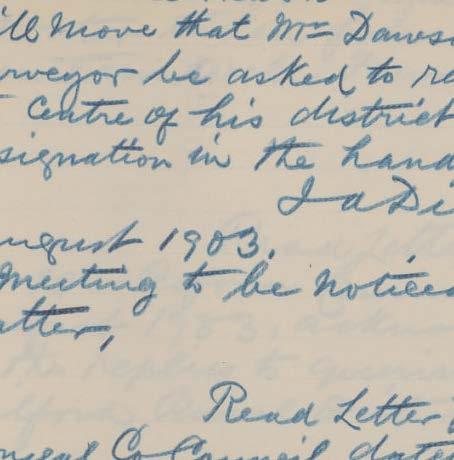 'll move that Mr Daws
urveyor be asked to re
centre of his district
signation in the hand
J A Di
ugust 1903.
meeting to be notice
atter,
Read Letter
Co Council date